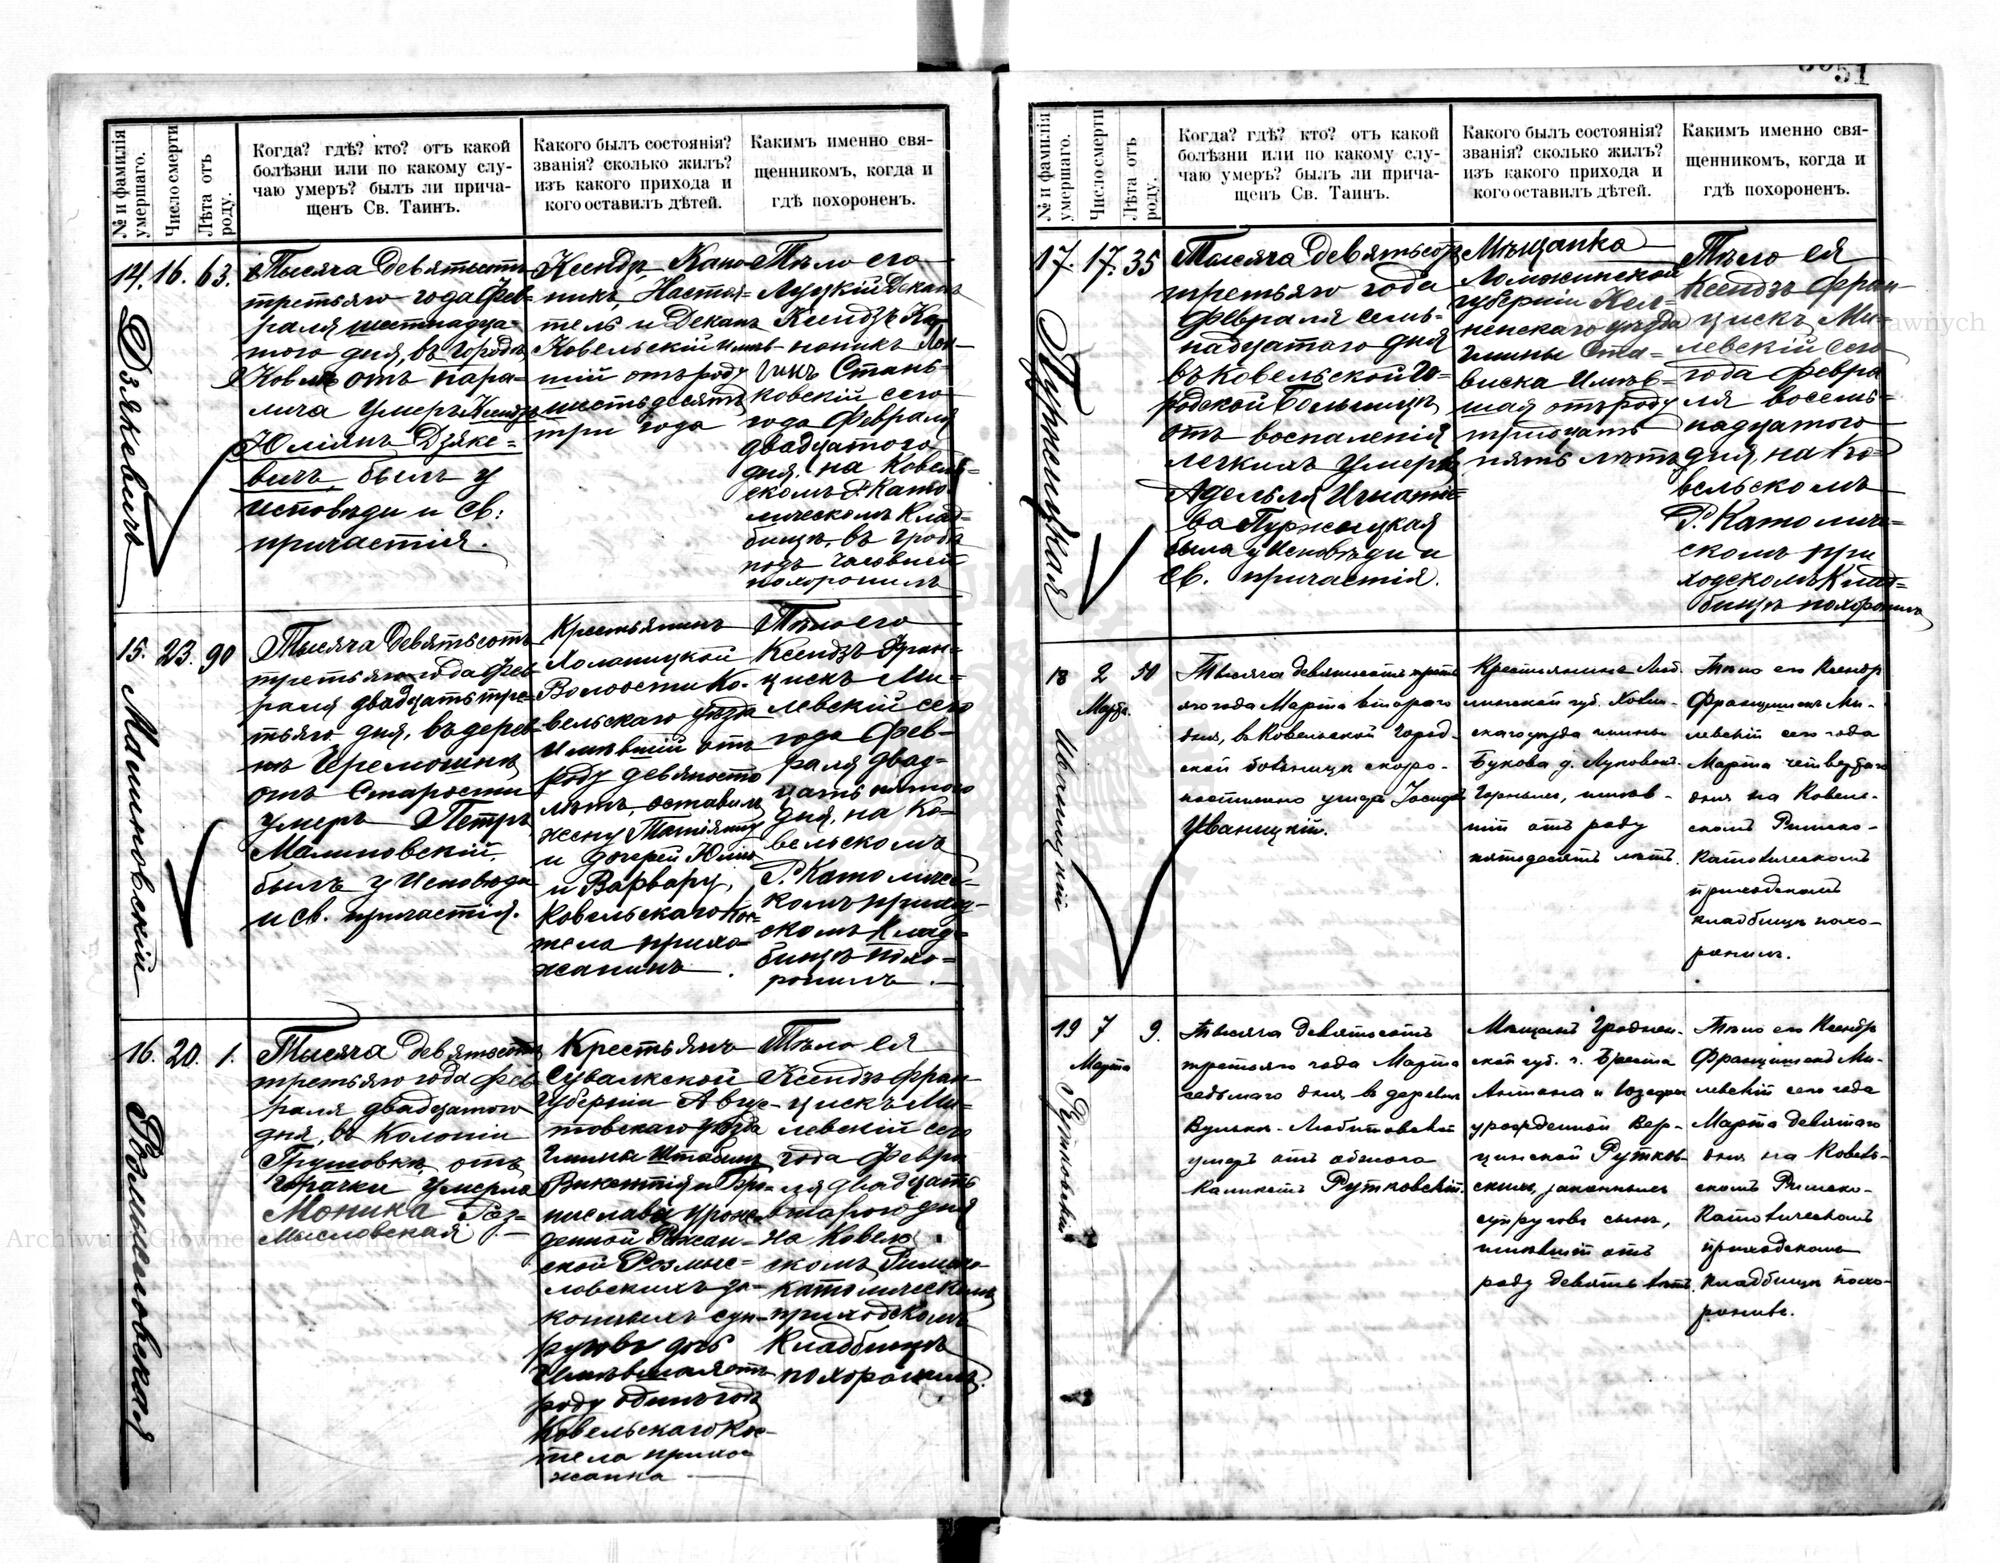 51
№ и фамилія умершаго.
Число смерти
Лѣта отъ роду.
Когда? гдѣ? кто? отъ какой
болѣзни или по какому слу-
чаю умеръ? былъ ли прича-
щенъ Св. Таинъ.
Какого былъ состоянія?
званія? сколько жилъ?
изъ какого прихода и
кого оставилъ дѣтей.
Каким именно свя-
щенникомъ, когда и
гдѣ похороненъ.
14.
16.
63.
Дзякевичъ
Тысяча девятьсотъ
третьяго года Фев-
раля шестнадца-
того дня, въ городѣ
Ковлѣ отъ пара-
лича умеръ Ксендзъ
Юліянъ Дзяке-
вичъ, былъ у
исповѣди и Св.
причастія.
Ксендзъ, Кано-
никъ, Настоя-
тель и Деканъ
Ковельскій имѣв-
шій отъ роду
шестьдесятъ
три года
Тѣло его
Луцкій Деканъ
Ксендзъ Ка-
ноникъ
сего
года Февраля
двадцатого
дня, на Ковель-
скомъ Р. Като-
лическомъ Клад-
бищѣ, въ гробѣ
подъ часовней
похоронилъ
15.
23.
90
Малиновскій
Тысяча девятьсотъ
третьяго года Фев-
раля двадцать тре-
тьяго дня, въ дерев-
нѣ Черемошнѣ
отъ Старости
умеръ Петръ
Малиновскій,
былъ у Исповѣди
и Св. причастія.
Крестьянинъ
Волости Ко-
вельскаго уѣзда
имѣвшій отъ
роду девяносто
лѣтъ, оставилъ
жену
и дочерей Юлію
и Варвару,
Ковельскаго Кос-
тела прихо-
жанинъ.
Тѣло его
Ксендзъ Фран-
цискъ Ми-
левскій сего
года Фев-
раля двад-
цать пятого
дня, на Ко-
вельскомъ
Р. Католичес-
комъ приход-
скомъ Клад-
бищѣ похо-
ронилъ.
16.
20.
1.
Розмысловская
Тысяча девятьсотъ
третьяго года Фев-
раля двадцатого
дня, въ Колоніи
Грушовкѣ отъ
горячки умерла
Моника Роз-
мысловская.
Крестьянъ
Сувалкской
губерніи Авгус-
товскаго уѣзда
Гмины Штабинъ
Викентія и Бро-
ниславы урож-
денной
ской Розмыс-
ловскихъ за-
конныхъ суп-
руговъ дочь
имѣвшая отъ
роду одинъ годъ
Ковельскаго Кос-
тела прихо-
жанка.
Тѣло ея
Ксендзъ Фран-
цискъ Ми-
левскій сего
года Февра-
ля двадцать
второго дня
на Ковель-
скомъ Римско-
католическомъ
приходскомъ
Кладбищѣ
похоронилъ.
№ и фамилія умершаго.
Число смерти
Лѣта отъ роду.
Когда? гдѣ? кто? отъ какой
болѣзни или по какому слу-
чаю умеръ? былъ ли прича-
щенъ Св. Таинъ.
Какого былъ состоянія?
званія? сколько жилъ?
изъ какого прихода и
кого оставилъ дѣтей.
Каким именно свя-
щенникомъ, когда и
гдѣ похороненъ.
17.
17.
35
Тысяча девятьсотъ
третьяго года
Февраля семь-
надцатого дня
въ Ковельской го-
родской Больницѣ
отъ воспаленія
легкихъ умерла
Адельля Игнатіе-
ва
была у Исповѣди и
Св. причастія.
Мѣщанка
Ломжинской
губерніи Коль-
ненскаго уѣзда
Гмины Ста-
виска имѣв-
шая отъ роду
тридцать
пять лѣтъ
Тѣло ея
Ксендзъ Фран-
цискъ Ми-
левскій сего
года Февра-
ля восемь-
надцатого
дня, на Ко-
вельскомъ
Р. Католиче-
скомъ при-
ходскомъ Клад-
бищѣ похоронилъ
18
2
Марта.
50
Иваницкій
Тысяча девятьсотъ треть-
яго года Марта второго
дня, въ Ковельской город-
ской больницѣ скоро-
постижно умеръ Іосифъ
Иваницкій.
Крестьянинъ Люб-
линской губ. Холм-
скаго уѣзда гмины
Букова д.
имѣв-
шій отъ роду
пятьдесятъ лѣтъ.
Тѣло его Ксендзъ
Францишекъ Ми-
левскій сего года
Марта четвертаго
дня на Ковель-
скомъ Римско-
Католическомъ
приходскомъ
кладбищѣ похо-
ронилъ.
19
7
Марта
9.
Рутковскій
Тысяча девятьсотъ
третьяго года Марта
седьмаго дня въ деревнѣ
Вульки-Любитовской
умеръ отъ обжога
Каликстъ Рутковскій.
Мѣщанъ Гроднен-
ской губ. г. Бреста
Антона и Юзефы
урожденной Вер-
цинской Рутков-
скихъ, законныхъ
супруговъ сынъ,
имѣвшій отъ
роду девять лѣтъ.
Тѣло его Ксендзъ
Францишекъ Ми-
левскій сего года
Марта девятаго
дня на Ковель-
скомъ Римско-
Католическомъ
приходскомъ
кладбищѣ похо-
ронилъ.